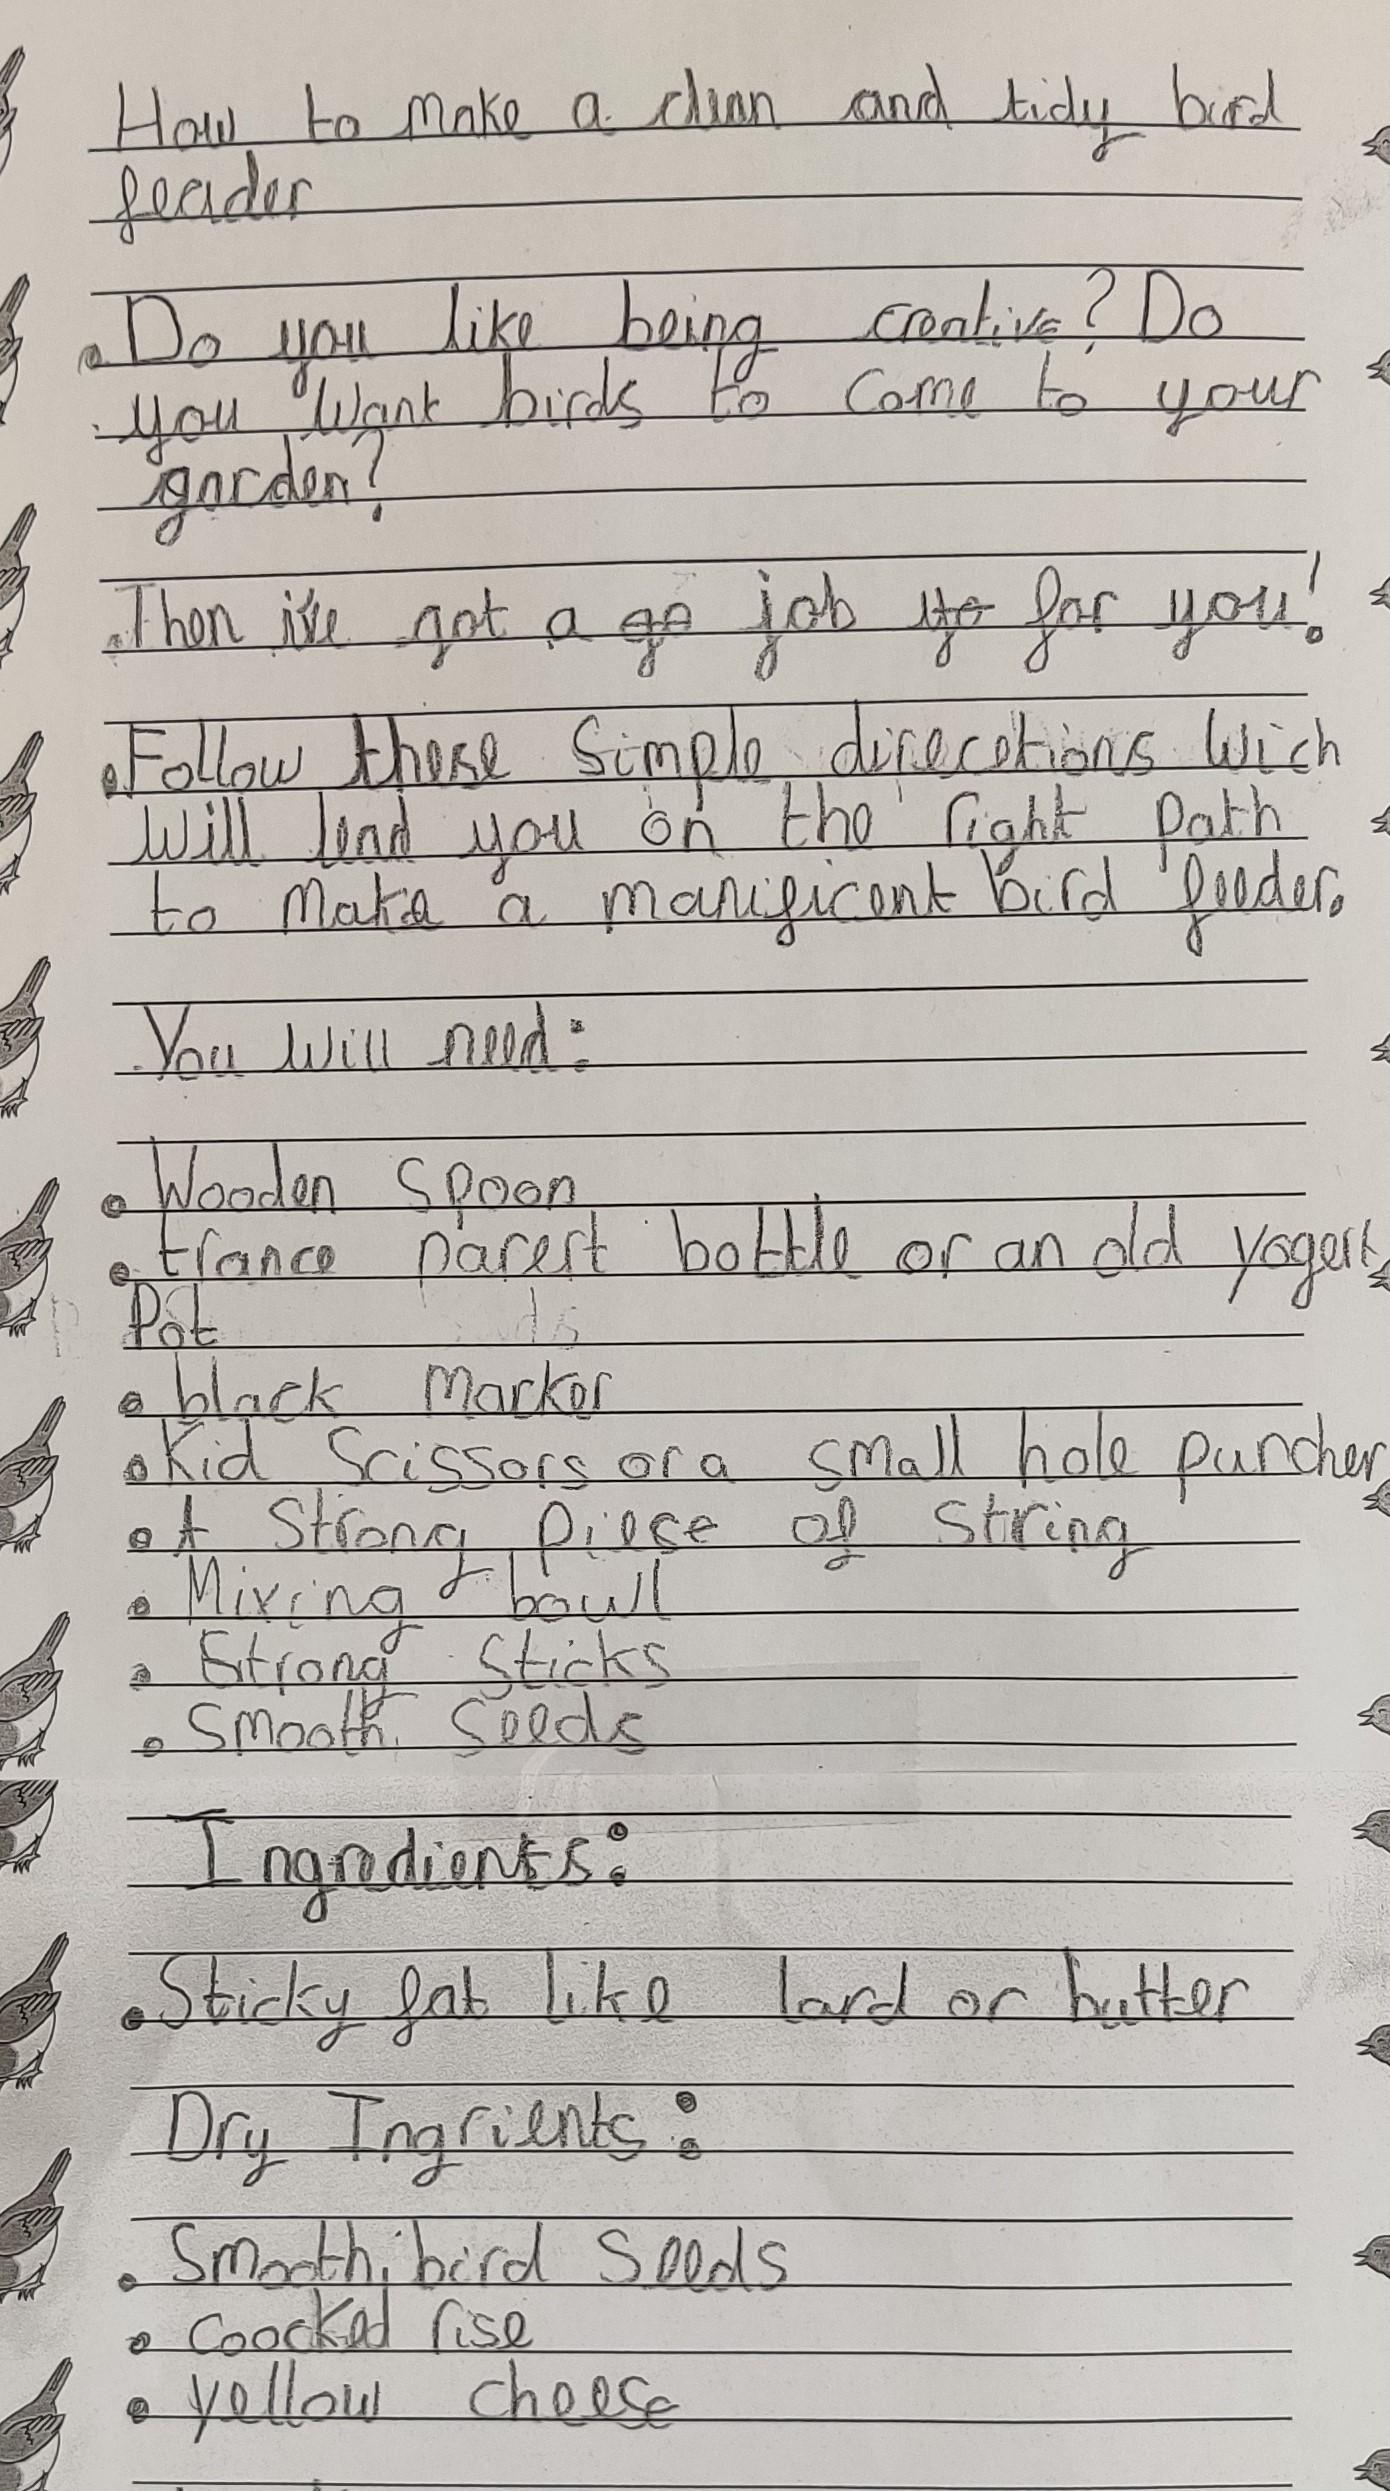 How to make a clean and tidy bird
feader
• Do you like being creative? Do
you want birds to come to your
garden?
Then i've got a go job yo for you!
• Follow these simple direcetions wich
will lead you on the right path
to make a manificent bird feeder.
You will need:
• Wooden spoon
• trance parert bottle or an old yogert
Pot
• black marker
• Kid scissors or a small hole puncher
• A strong piese of string
• Mixing bowl
• Strong sticks
• Smooth, seeds
Ingredients:
• Sticky fat like lard or butter
Dry Ingrients:
• Smooth, bird seeds
• coocked rise
• yellow cheese